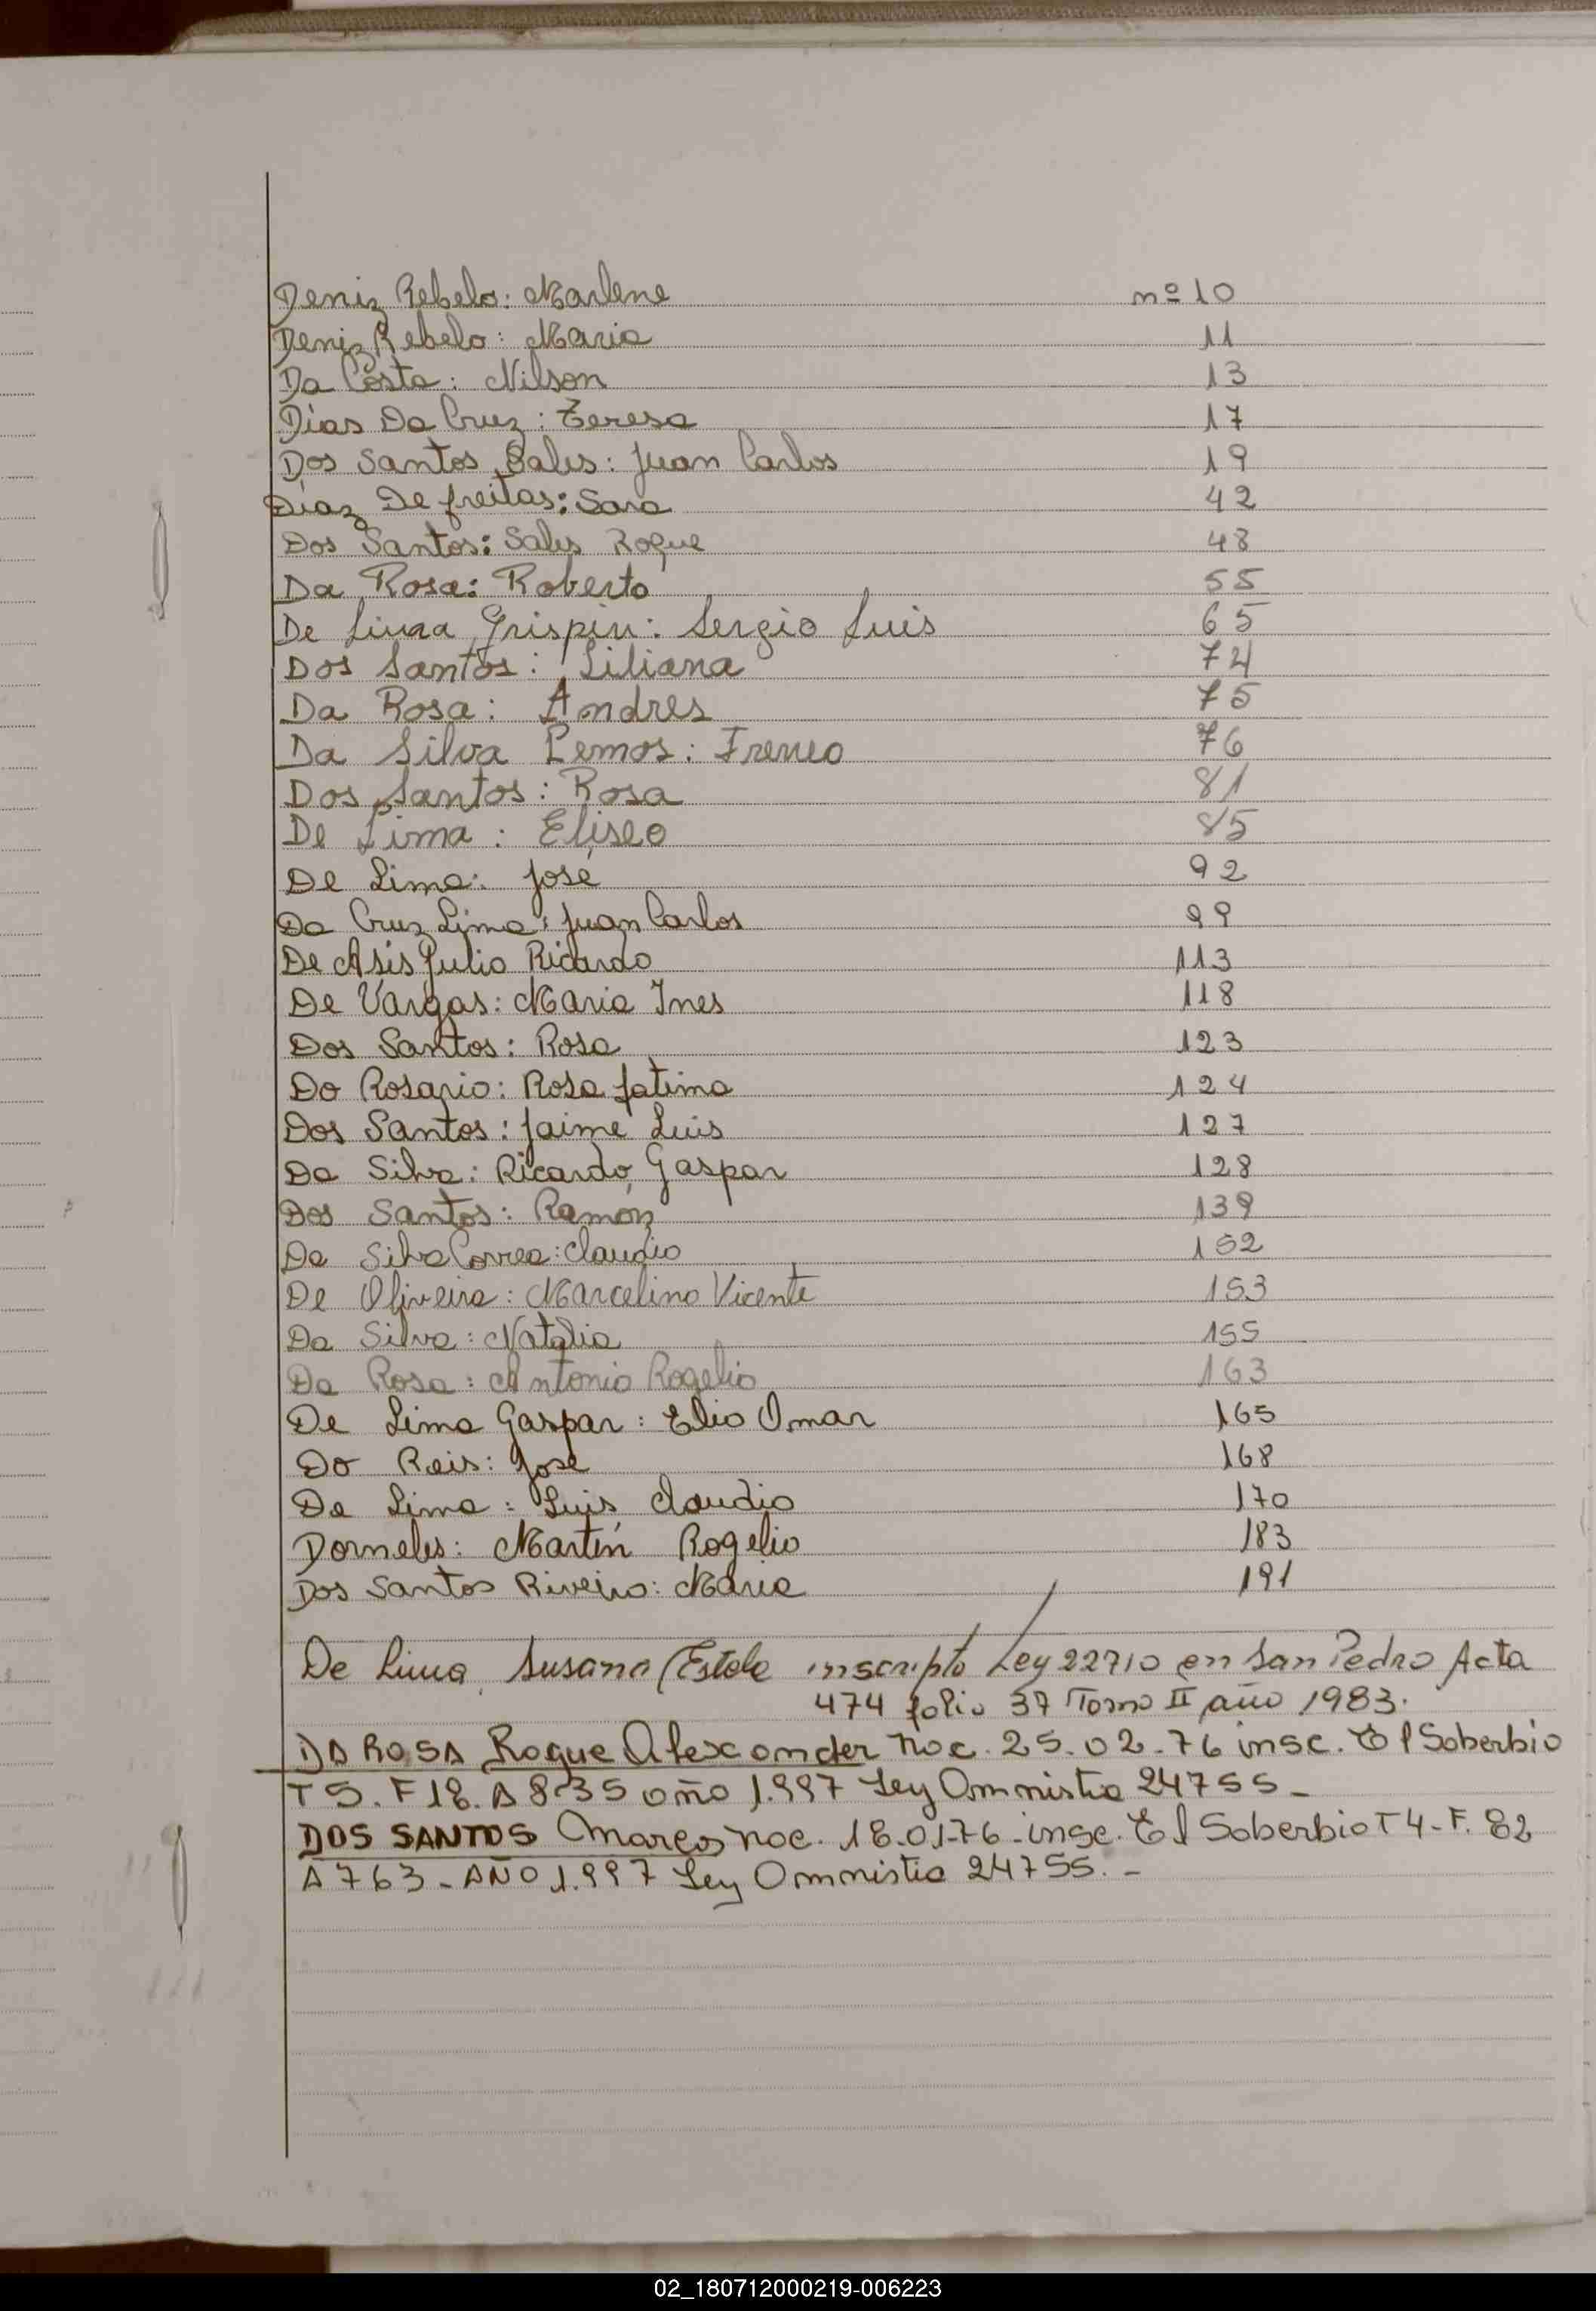 Deniz Rebelo: Marlene nº 10
Deniz Rebelo: Maria 11
Da Costa: Nilson 13
Dias Da Cruz: Teresa 17
Dos Santos Sales: Juan Carlos 19
Diaz De freitas: Sara 42
Dos Santos: Sales Roque 48
Da Rosa: Roberto 55
De Lima Grispin: Sergio Luis 65
Dos Santos: Liliana 74
Da Rosa: Andres 75
Da Silva Lemos: Ireneo 76
Dos Santos: Rosa 81
De Lima: Eliseo 85
De Lima: José 92
Da Cruz Lima: Juan Carlos 99
De Asis Julio Ricardo 113
De Vargas: Maria Ines 118
Dos Santos: Rosa 123
Do Rosario: Rosa fatima 124
Dos Santos: Jaime Luis 127
Da Silva: Ricardo Gaspar 128
Dos Santos: Ramón 139
Da Silva Correa: Claudio 152
De Oliveira: Marcelino Vicente 153
Da Silva: Natalia 155
Da Rosa: Antonio Rogelio 163
De Lima Gaspar: Elio Omar 165
Do Reis: José 168
De Lima: Luis Claudio 170
Dorneles: Martín Rogelio 183
Dos Santos Riveiro: Maria 191
De Lima, Susana (Estela inscripto Ley 22710 en San Pedro Acta
474 folio 37 Tomo II año 1983.
DA ROSA Roque Alexander nac. 25.02-76 insc. El Soberbio
T 5. F 18. A 835 año 1.997 Ley Amnistia 24755 -
DOS SANTOS Marcos nac. 18-01-76 - insc. El Soberbio T 4 - F. 82
A 763 - AÑO 1.997 Ley Amnistia 24755. -
02_180712000219-006223